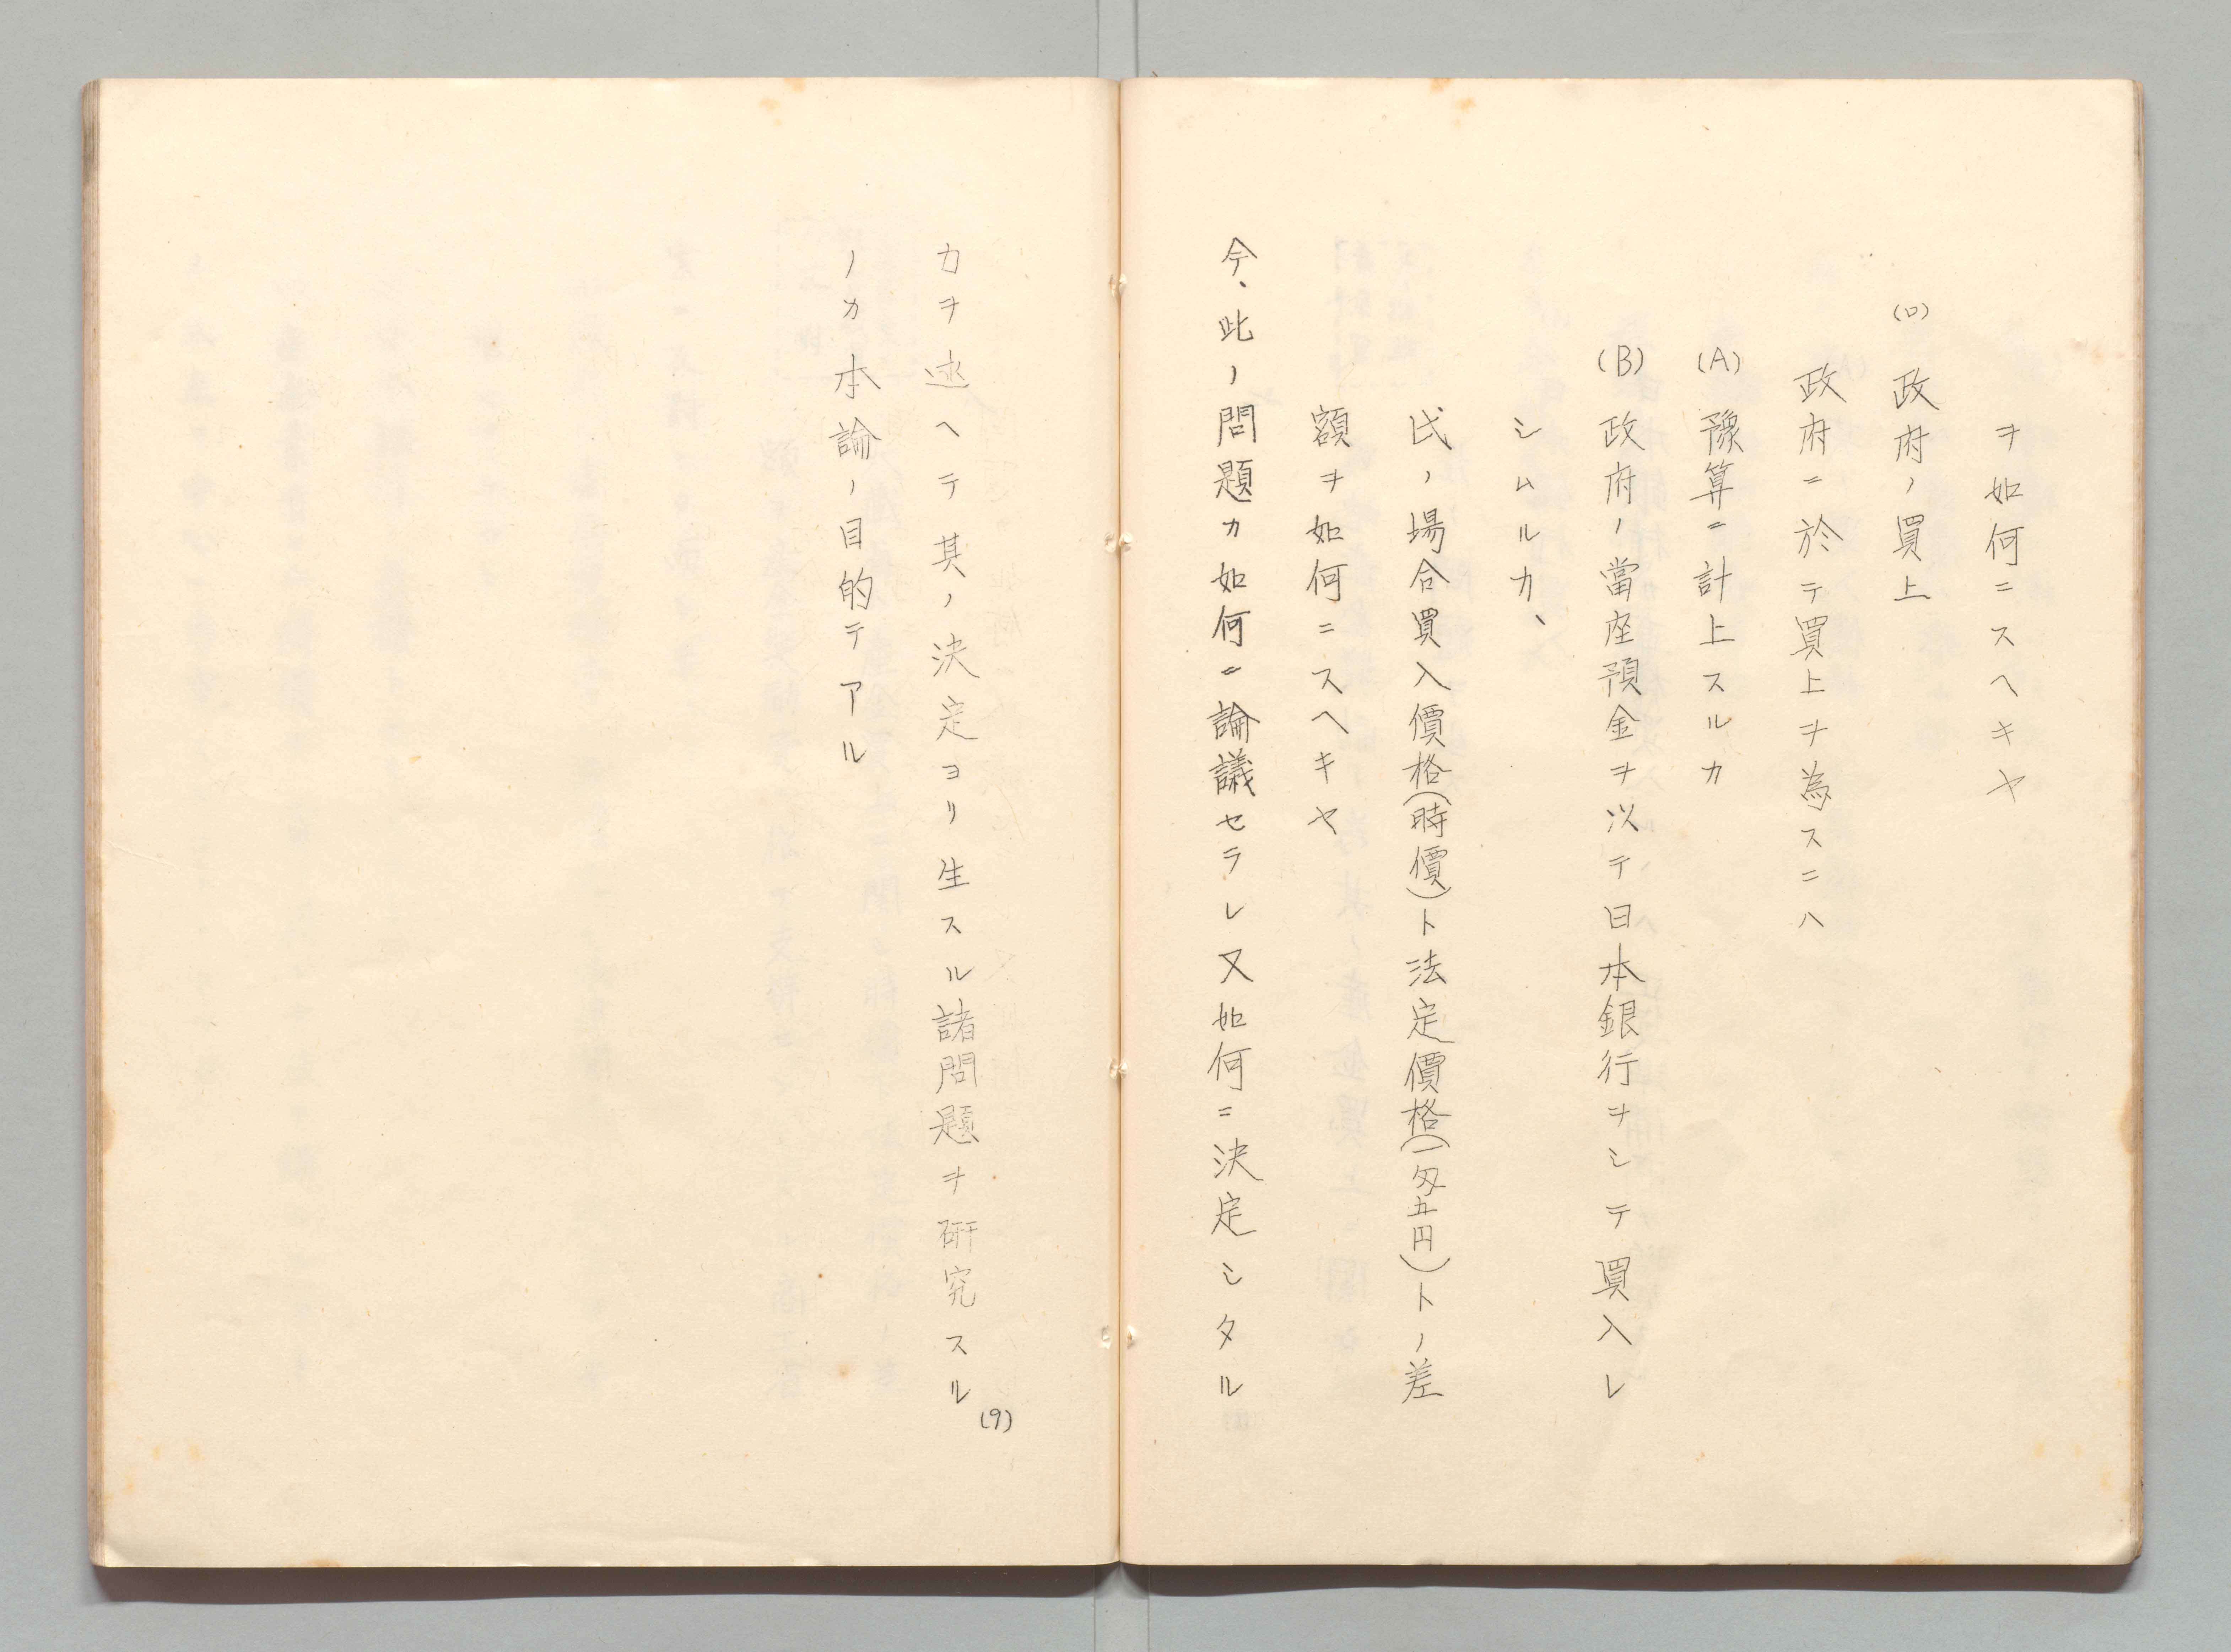 ヲ如何ニスヘキヤ
(ロ) 政府ノ買上
政府ニ於テ買上ヲ為スニハ
(A) 豫算ニ計上スルカ
(B) 政府ノ當座預金ヲ以テ日本銀行ヲシテ買入レ
シムルカ、
此ノ場合買入價格(時價)ト法定價格(一匁五円)トノ差
額ヲ如何ニスヘキヤ
今、此ノ問題カ如何ニ論議セラレ又如何ニ決定シタル
カヲ述ヘテ其ノ決定ヨリ生スル諸問題ヲ研究スル
ノカ本論ノ目的テアル
(9)